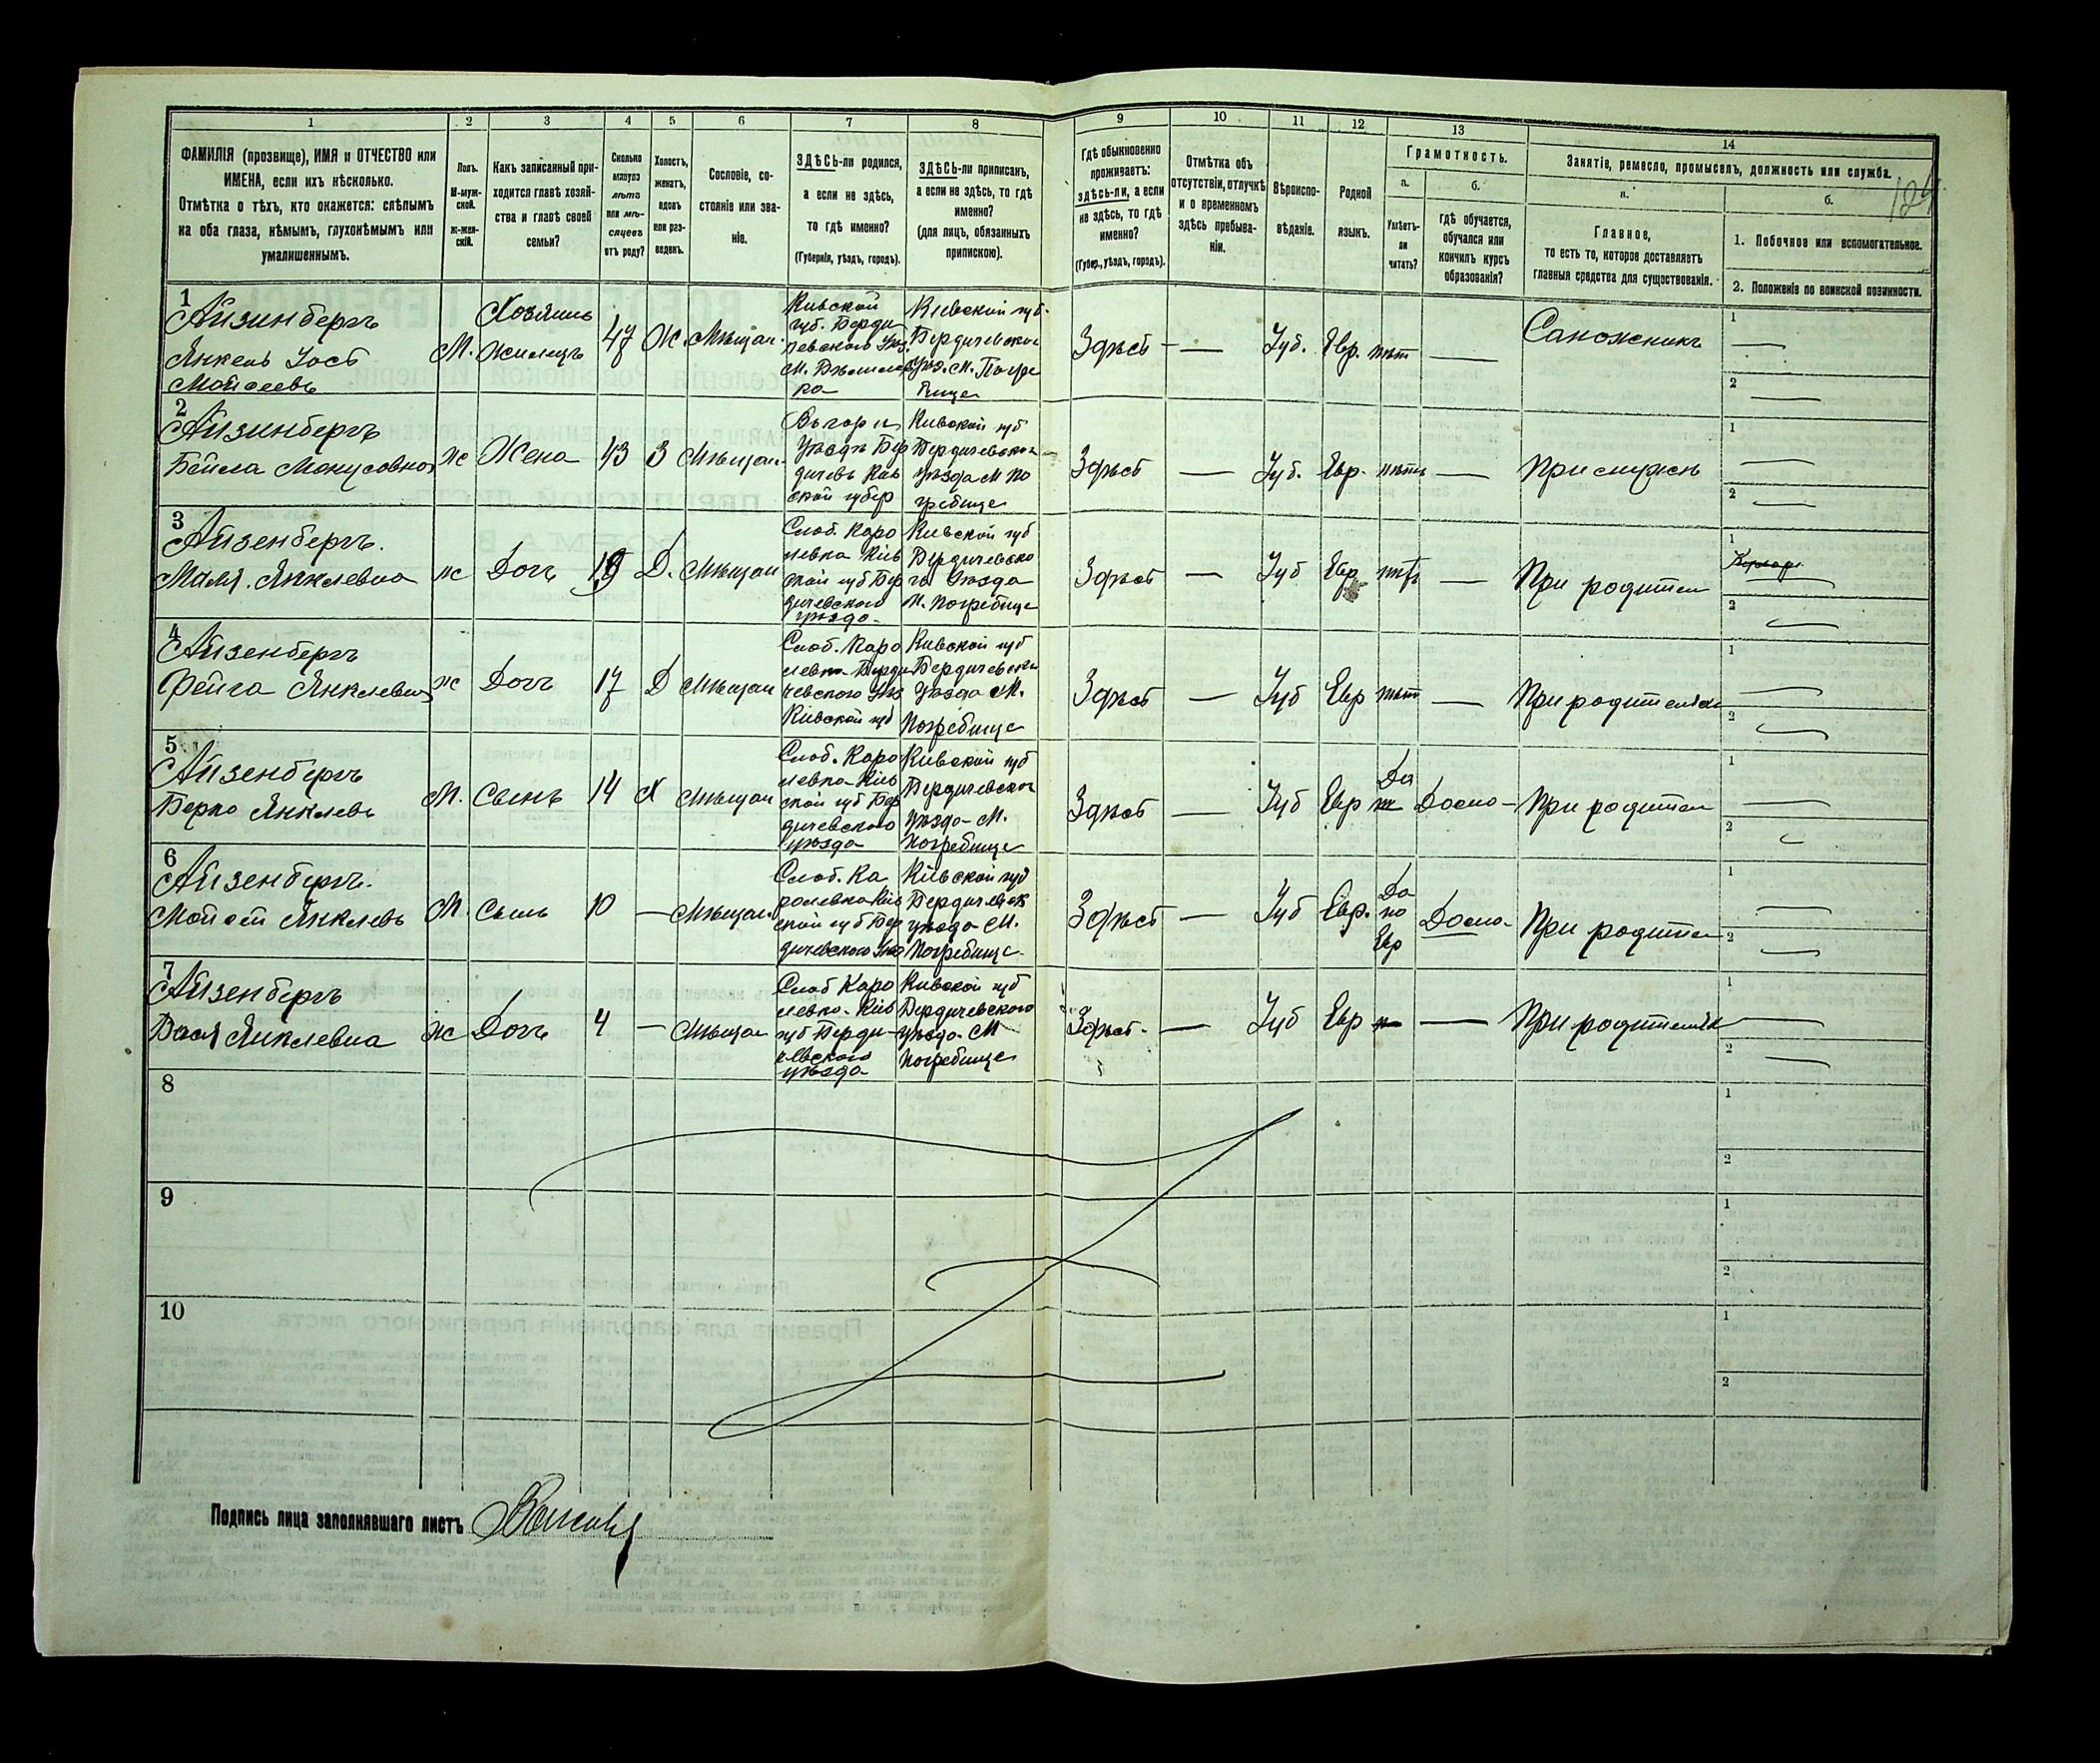 1 2 3 4 5 6 7 8 9 10 11 12 13 14
ФАМИЛІЯ (прозвище), ИМЯ и ОТЧЕСТВО или
ИМЕНА, если ихъ нѣсколько.
Отмѣтка о тѣхъ, кто окажется: слѣпымъ
на оба глаза, нѣмымъ, глухонѣмымъ или
умалишеннымъ.
Полъ.
М-муж-
ской.
Ж-жен-
скій.
Какъ записанный при-
ходится главѣ хозяй-
ства и главѣ своей
семьи?
Сколько
минуло
лѣтъ
или мѣ-
сяцевъ
отъ роду?
Холостъ,
женатъ,
вдовъ
или раз-
веденъ.
Сословіе, со-
стояніе или зва-
ніе.
ЗДѢСЬ-ли родился,
а если не здѣсь,
то гдѣ именно?
(Губернія, уѣздъ, городъ).
ЗДѢСЬ-ли приписанъ,
а если не здѣсь, то гдѣ
именно?
(для лицъ, обязанныхъ
припискою).
Гдѣ обыкновенно
проживаетъ:
здѣсь-ли, а если
не здѣсь, то гдѣ
именно?
(Губер., уѣздъ, городъ).
Отмѣтка объ
отсутствіи, отлучкѣ
и о временномъ
здѣсь пребыва-
ніи.
Вѣроиспо-
вѣданіе.
Родной
языкъ.
Грамотность.
а.
Умѣетъ-
ли
читать?
б.
гдѣ обучается,
обучался или
кончилъ курсъ
образованія?
Занятіе, ремесло, промыселъ, должность или служба.
а.
Главное,
то есть то, которое доставляетъ
главныя средства для существованія.
б.
1. Побочное или вспомогательное.
2. Положеніе по воинской повинности.
1
Айзинбергъ
Янкель
Мойсеевъ
М.
Хозяинъ
Жилецъ
47
Ж.
Мѣщан.
Кивской
губ. Берди
чевского Уѣз.
М.
ка
Киевской губ.
Бердичевского
Уѣз. М. Погре
бище
Здѣсъ
—
Іуд.
Евр.
нѣт
—
Сапожникъ
1 —
2 —
2
Айзинбергъ
Бейла
ж
Жена
43
З
Мѣщан.
Уѣздъ Бер
дичевъ Кив
ской губер
Кивской губ
Бердичевского
Уѣзда М По
гребище
Здѣсъ
—
Іуд.
Евр.
нѣтъ
—
При мужѣ
1 —
2 —
3
Айзенбергъ.
Маля. Янклевна
ж
Дочь
19
Д.
Мѣщан
Слоб. Каро
левка Кіев
ской губ Бер
дичевского
уѣзда
Кивской губ
Бердичевско
го Уѣзда
М. Погребище
Здѣсъ
—
Іуд
Евр
нѣтъ
—
При родител
1 —
2 —
4
Айзенбергъ
Фейга Янклевна
ж
Дочь
17
Д
Мѣщан
Слоб. Каро
левка Берди
чевского Уѣз
Кіивской губ
Кивской губ
Бердичевски
Уѣзда М.
Погребище
Здѣсъ
—
Іуд
Евр
нѣт
—
При родителях
1 —
2 —
5
Айзенбергъ
Берко Янклевъ
М.
Сынъ
14
Х
Мѣщан
Слоб. Каро
левка Кіив
ской губ Бер
дичевского
уѣзда
Кивской губ
Бердичевског
уѣзда М.
Погребище
Здѣсъ
—
Іуд
Евр
Да
Дома
При родител
1 —
2 —
6
Айзенбергъ.
Мойсей Янклевъ
М.
Сынъ
10
—
Мѣщан.
Слоб. Ка
ролевка Кіив
ской губ Бер
дичевского Уѣз
Кіивской губ
Бердичевск
уѣзда М.
Погребище
Здѣсъ
—
Іуд
Евр.
Да
по
Евр
Дома
При родител
1 —
2 —
7
Айзенбергъ
Бася Янклевна
ж
Дочь
4
—
Мѣщан
Слоб Каро
левка Кіив
губ Берди
чевского
уѣзда
Кивской губ
Бердичевского
уѣзда М
Погребище
Здѣсъ.
—
Іуд
Евр
—
При родителях
1 —
2 —
8
1
2
9
1
2
10
1
2
Подпись лица заполнявшаго листъ